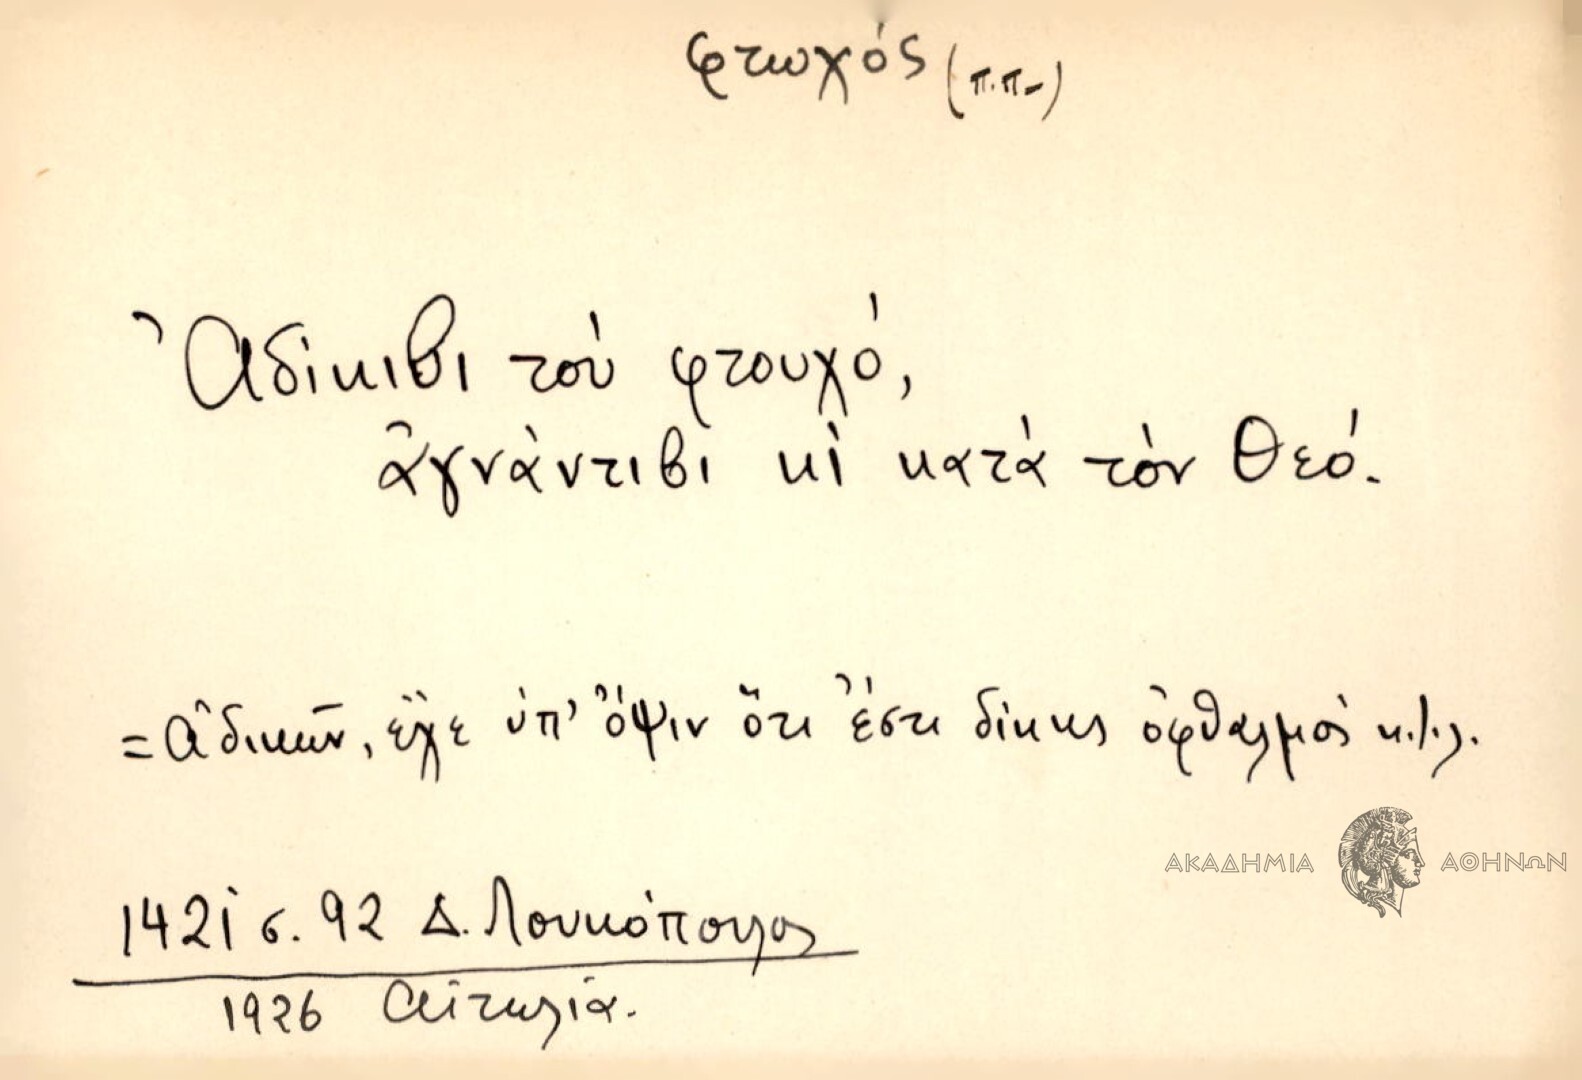 φτωχός (π.π.)
Ἀδίκιβι τοὺ φτουχό,
ἀγνάντιβι κὶ κατὰ τὸν Θεό.
= Ἀδικῶν, ἔχε ὑπ' ὄψιν ὅτι ἔστι δίκης ὀφθαλμὸς κ.τ.λ.
1421 σ. 92 Δ. Λουκόπουλος
1926 Αἰτωλία.
ΑΚΑΔΗΜΙΑ ΑΘΗΝΩΝ